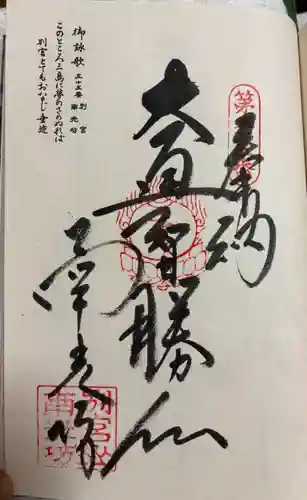 奉納
大通智勝仏
南光坊
御詠歌
五十五番 別宮 南光坊
このところ三島に夢のさめぬれば
別宮とてもおなじ垂迹
別宮山
南光坊